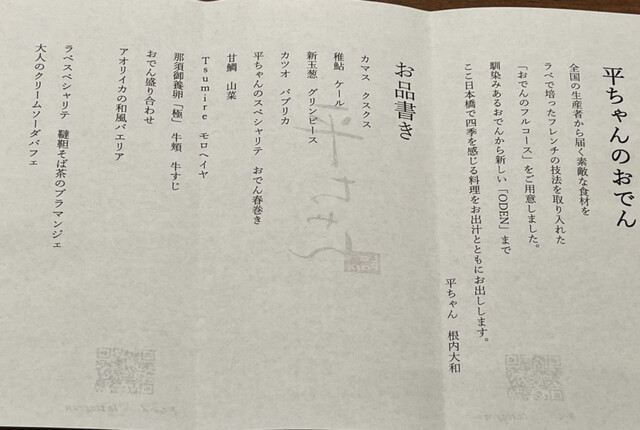 平ちゃんのおでん
全国の生産者から届く素敵な食材を
ラペで培ったフレンチの技法を取り入れた
「おでんのフルコース」をご用意しました。
馴染みあるおでんから新しい「ODEN」まで
ここ日本橋で四季を感じる料理をお出汁とともにお出しします。
平ちゃん 根内大和
お品書き
カマス クスクス
稚鮎 ケール
新玉葱 グリンピース
カツオ パプリカ
平ちゃんのスペシャリテ おでん春巻き
甘鯛 山菜
Tsumire モロヘイヤ
那須御養卵「極」 牛頬 牛すじ
おでん盛り合わせ
アオリイカの和風パエリア
ラペスペシャリテ 韃靼そば茶のブラマンジェ
大人のクリームソーダパフェ
平ちゃん